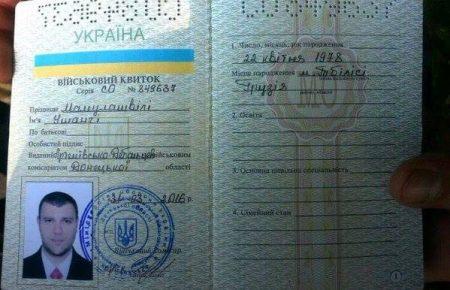 УКРАЇНА
ВІЙСЬКОВИЙ КВИТОК
Серія СО № 849637
Прізвище Мамулашвілі
Ім'я Ушангі
По батькові
Особистий підпис
Виданий військовим
комісаріатом Донецької області
2016 р.
1. Число, місяць, рік народження
22 квітня 1978
Місце народження м. Тбілісі
Грузія
2. Освіта
3. Основна цивільна спеціальність
4. Сімейний стан
1